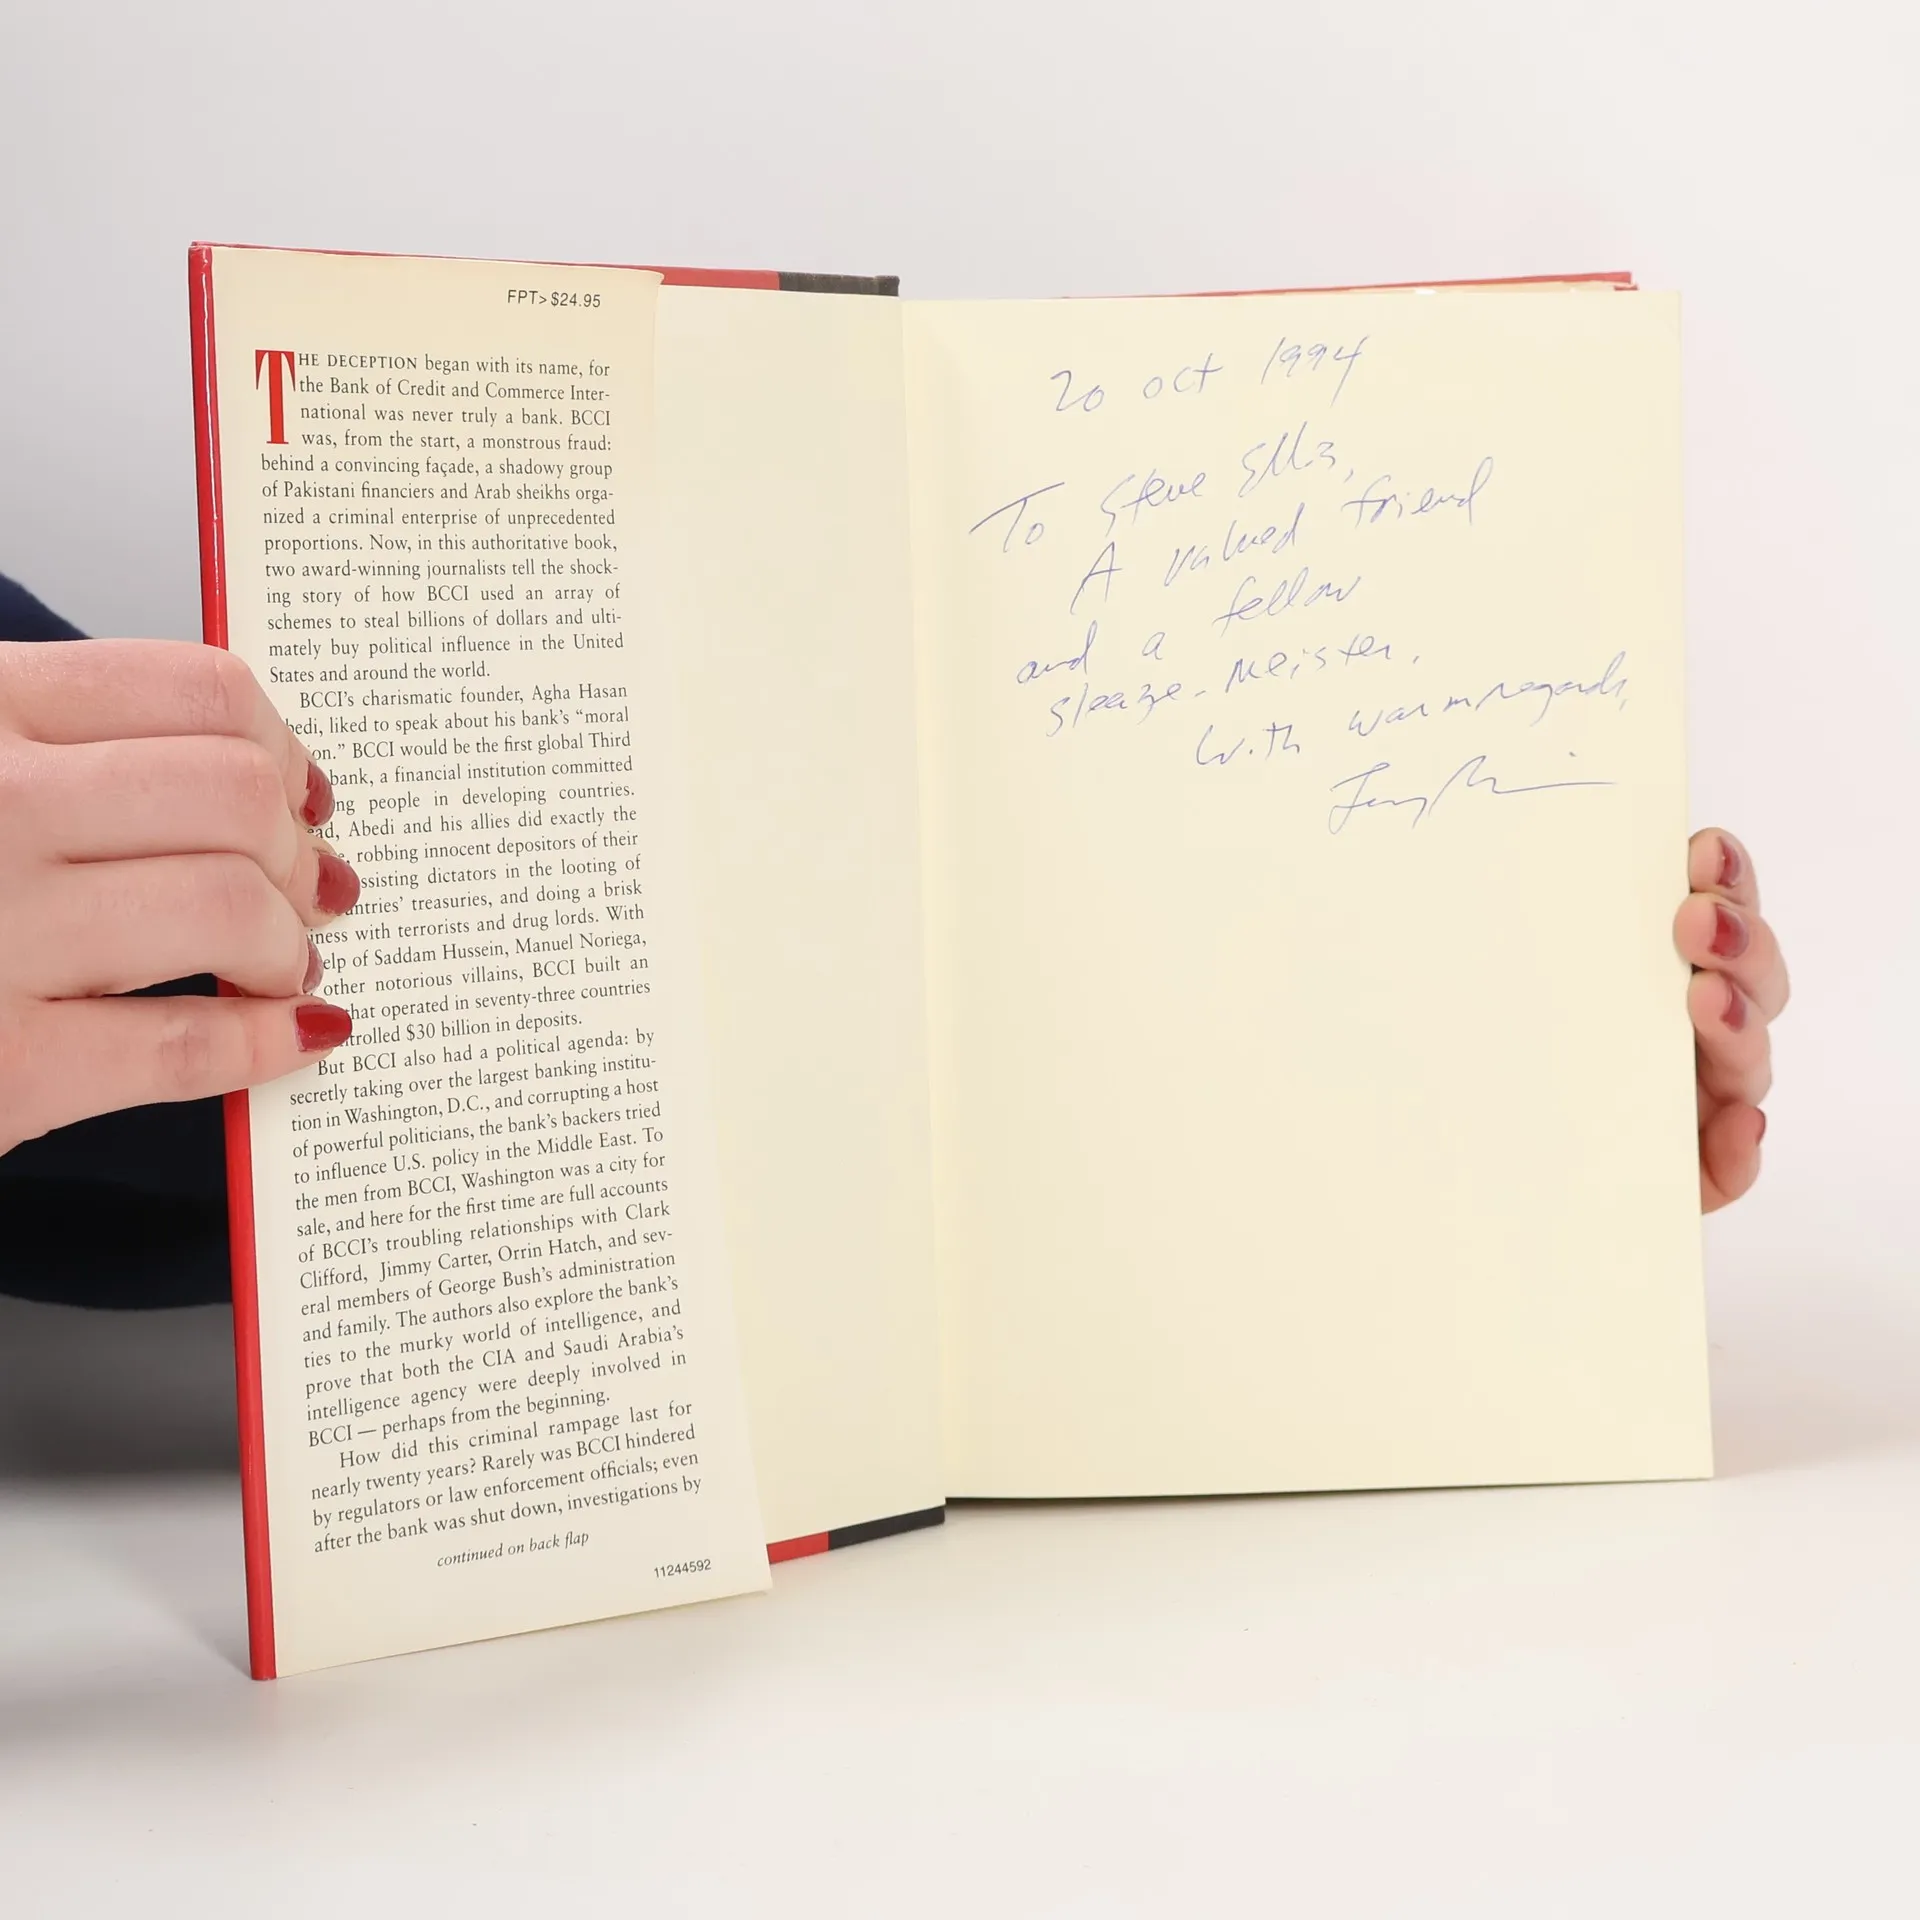 FPT> $24.95
THE DECEPTION began with its name, for
the Bank of Credit and Commerce Inter-
national was never truly a bank. BCCI
was, from the start, a monstrous fraud:
behind a convincing façade, a shadowy group
of Pakistani financiers and Arab sheikhs orga-
nized a criminal enterprise of unprecedented
proportions. Now, in this authoritative book,
two award-winning journalists tell the shock-
ing story of how BCCI used an array of
schemes to steal billions of dollars and ulti-
mately buy political influence in the United
States and around the world.
BCCI's charismatic founder, Agha Hasan
bedi, liked to speak about his bank's “moral
on.” BCCI would be the first global Third
bank, a financial institution committed
ng people in developing countries.
ead, Abedi and his allies did exactly the
e, robbing innocent depositors of their
ssisting dictators in the looting of
untries' treasuries, and doing a brisk
iness with terrorists and drug lords. With
elp of Saddam Hussein, Manuel Noriega,
other notorious villains, BCCI built an
that operated in seventy-three countries
trolled $30 billion in deposits.
But BCCI also had a political agenda: by
secretly taking over the largest banking institu-
tion in Washington, D.C., and corrupting a host
of powerful politicians, the bank's backers tried
to influence U.S. policy in the Middle East. To
the men from BCCI, Washington was a city for
sale, and here for the first time are full accounts
of BCCI's troubling relationships with Clark
Clifford, Jimmy Carter, Orrin Hatch, and sev-
eral members of George Bush's administration
and family. The authors also explore the bank's
ties to the murky world of intelligence, and
prove that both the CIA and Saudi Arabia's
intelligence agency were deeply involved in
BCCI — perhaps from the beginning.
How did this criminal rampage last for
nearly twenty years? Rarely was BCCI hindered
by regulators or law enforcement officials; even
after the bank was shut down, investigations by
continued on back flap
11244592
20 oct 1994
To Steve Ellis,
A valued friend
and a fellow
sleaze-meister.
With warm regards,